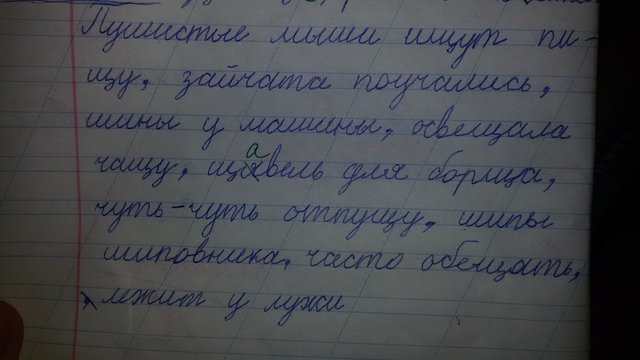 Пушистые мыши ищут пи-
щу, зайчата поучались,
шины у машины, освещала
чащу, щавель для борща,
чуть-чуть отпущу, шипы
шиповника, часто обещать,
лежит у лужи